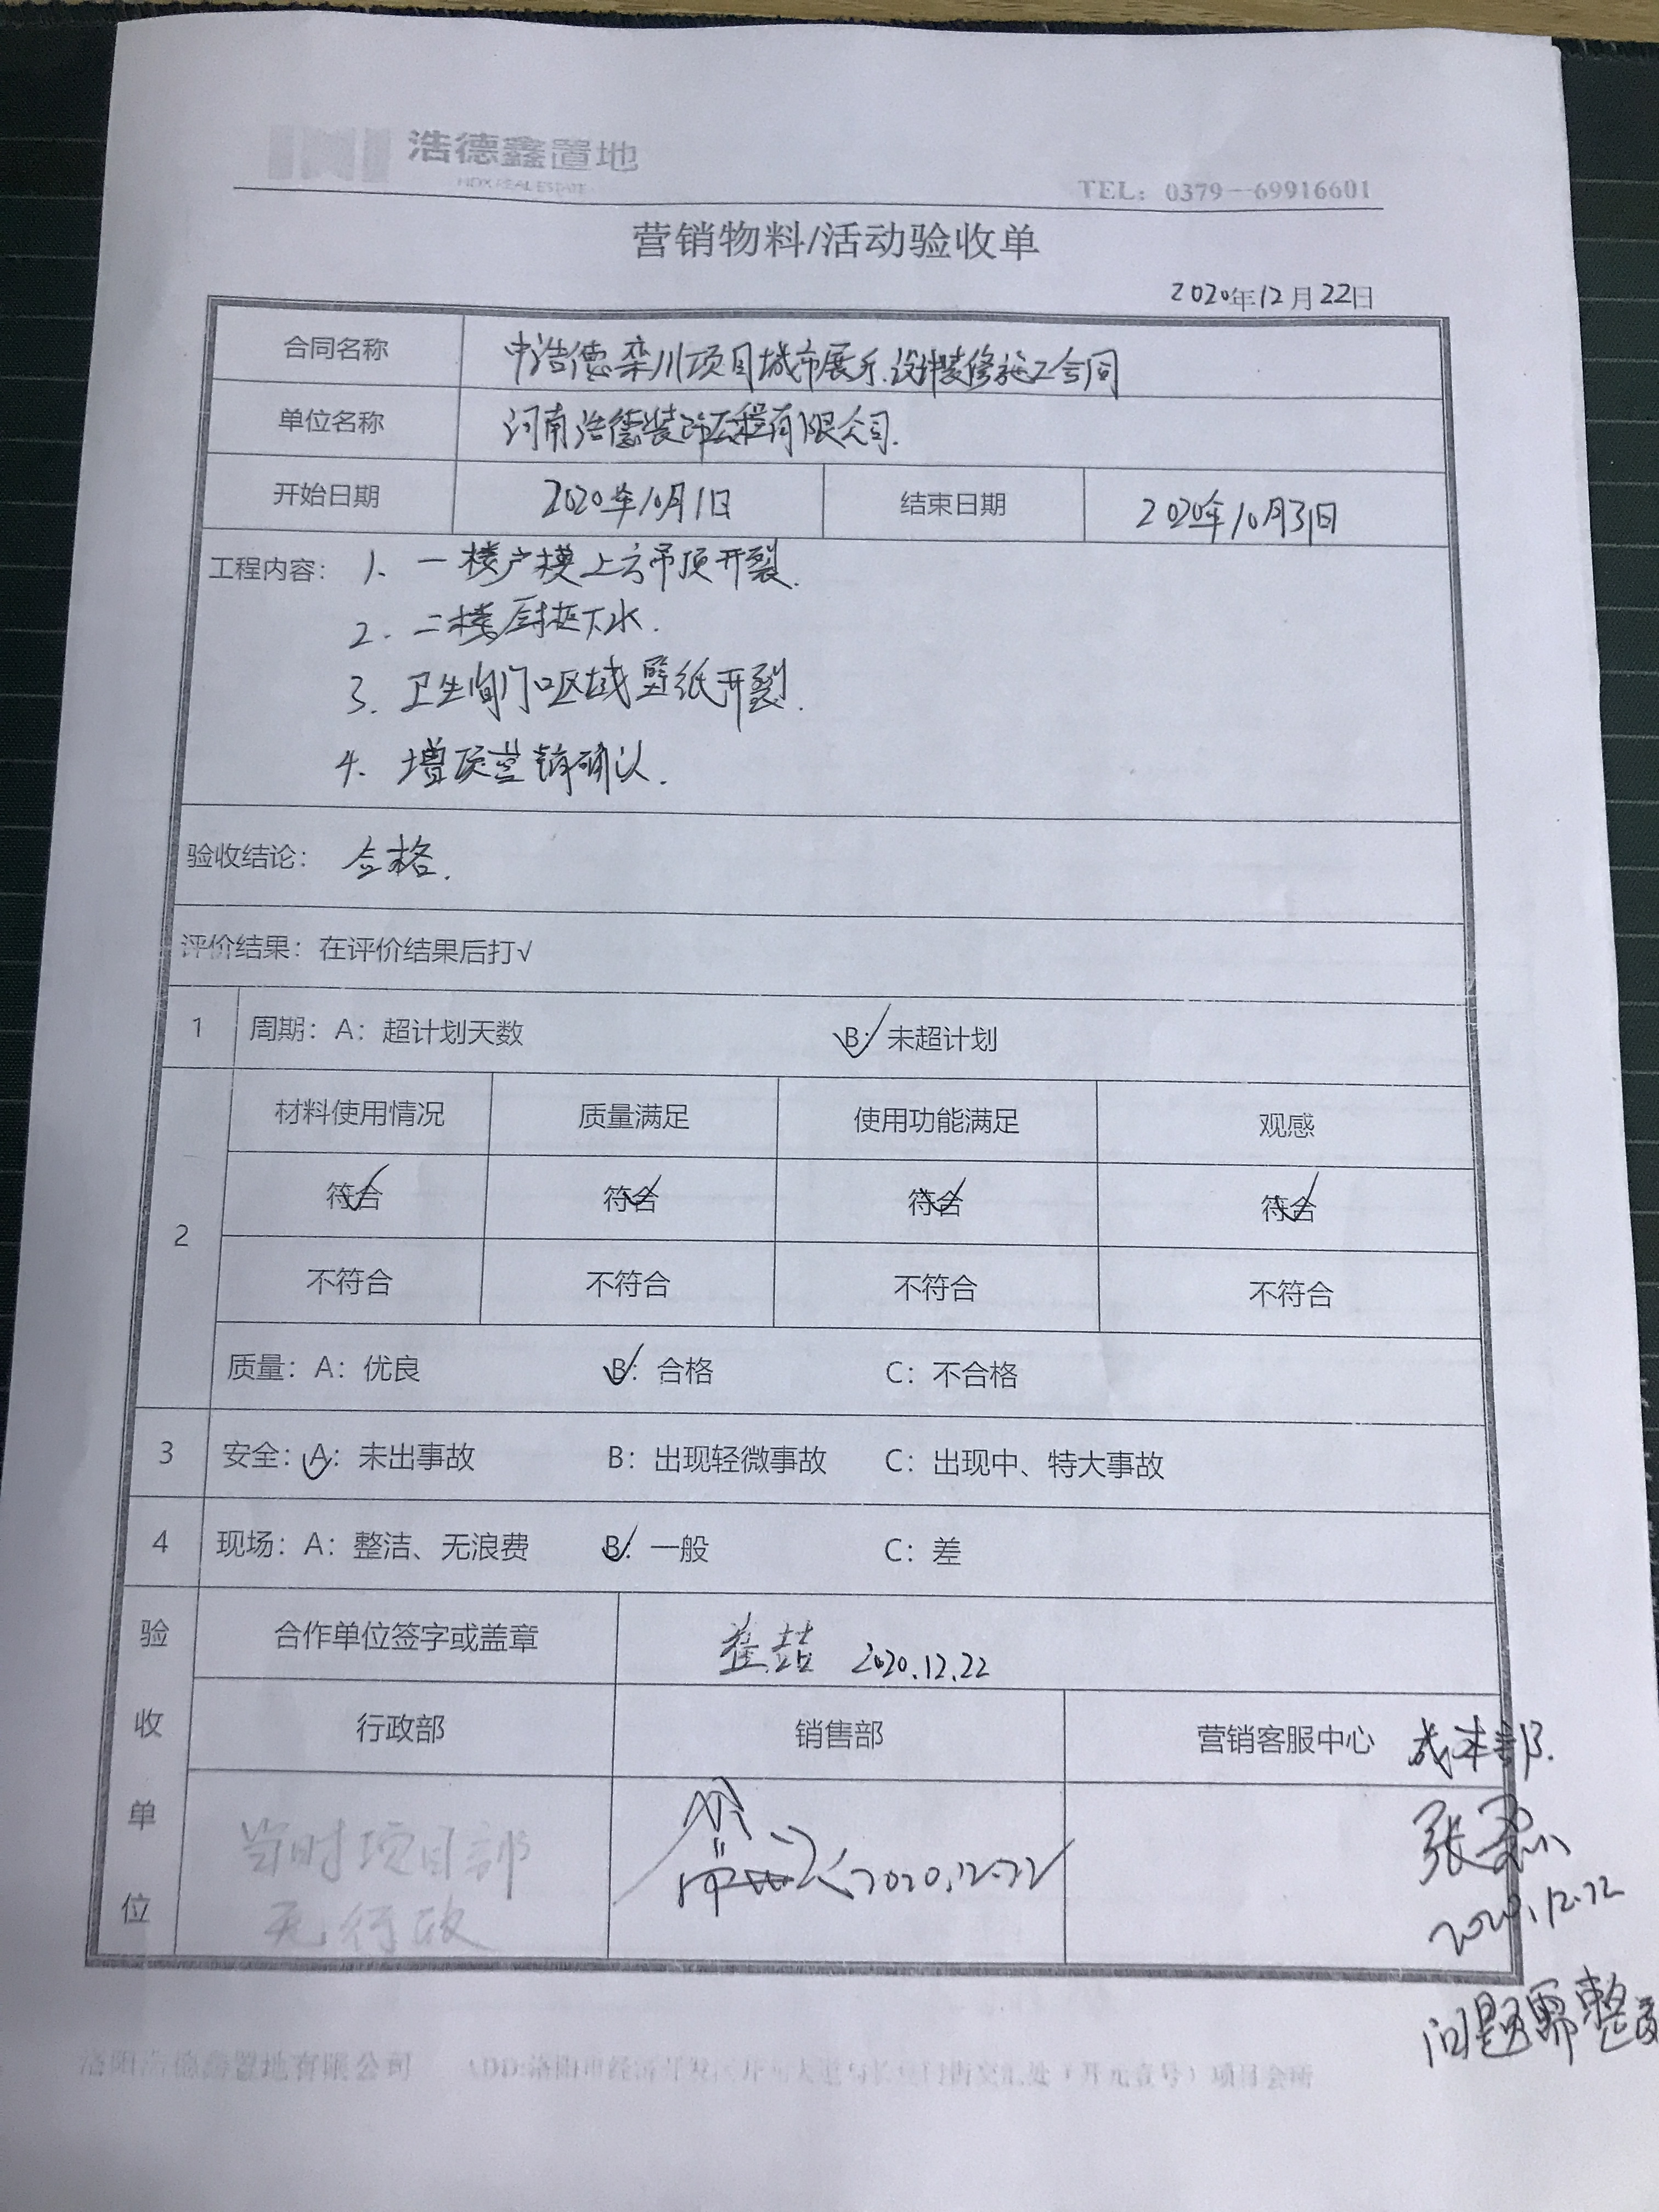 浩德鑫置地
HDX REAL ESTATE
TEL: 0379--69916601
营销物料/活动验收单
2020年12月22日
合同名称 中浩德栾川项目城市展示设计装修施工合同
单位名称 河南浩德装饰工程有限公司.
开始日期 2020年10月1日 结束日期 2020年10月31日
工程内容: 1. 一楼户模上方吊顶开裂.
2. 二楼厨柜下水.
3. 卫生间门口区域壁纸开裂.
4. 增项营销确认.
验收结论: 合格.
评价结果: 在评价结果后打√
1 周期: A: 超计划天数 B: 未超计划
材料使用情况 质量满足 使用功能满足 观感
符合 符合 符合 符合
2
不符合 不符合 不符合 不符合
质量: A: 优良 B: 合格 C: 不合格
3 安全: A: 未出事故 B: 出现轻微事故 C: 出现中、特大事故
4 现场: A: 整洁、无浪费 B: 一般 C: 差
验收单位
合作单位签字或盖章 2020.12.22
行政部 销售部 营销客服中心 成本部.
当时项目部
无行政
2020.12.22
张
2020.12.22
问题需整改
洛阳浩德鑫置地有限公司 ADD:洛阳市经济开发区开元大道与长兴街交汇处(开元壹号)项目会所